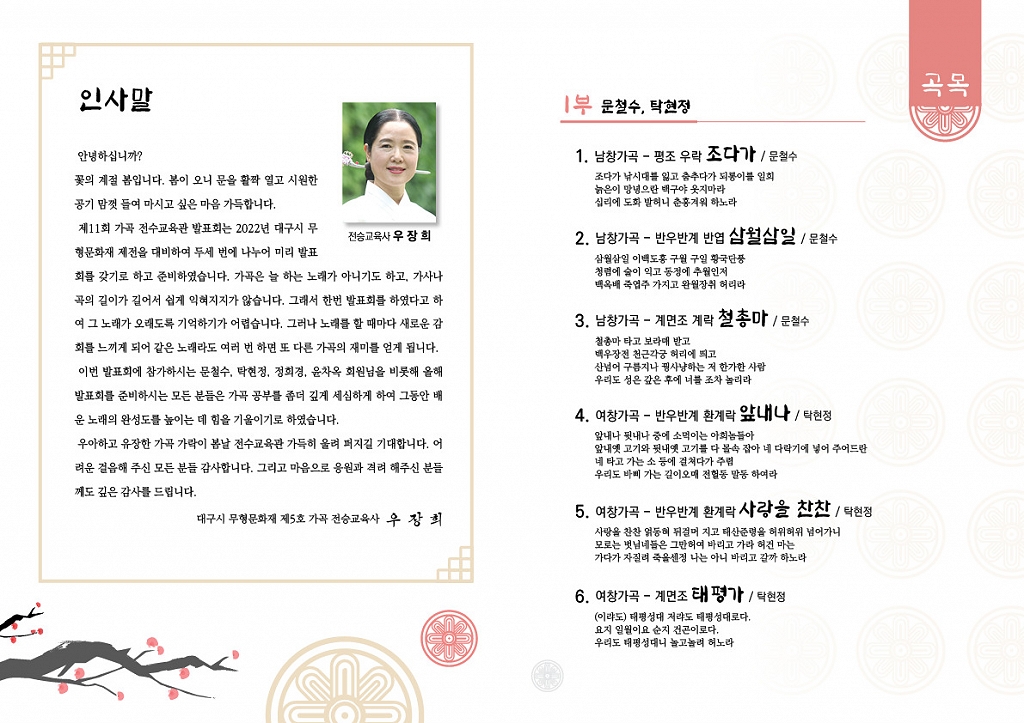 인사말
안녕하십니까?
꽃의 계절 봄입니다. 봄이 오니 문을 활짝 열고 시원한
공기 맘껏 들여 마시고 싶은 마음 가득합니다.
제11회 가곡 전수교육관 발표회는 2022년 대구시 무
형문화재 제전을 대비하여 두세 번에 나누어 미리 발표
회를 갖기로 하고 준비하였습니다. 가곡은 늘 하는 노래가 아니기도 하고, 가사나
곡의 길이가 길어서 쉽게 익혀지지가 않습니다. 그래서 한번 발표회를 하였다고 하
여 그 노래가 오래도록 기억하기가 어렵습니다. 그러나 노래를 할 때마다 새로운 감
회를 느끼게 되어 같은 노래라도 여러 번 하면 또 다른 가곡의 재미를 얻게 됩니다.
이번 발표회에 참가하시는 문철수, 탁현정, 정희경, 윤차옥 회원님을 비롯해 올해
발표회를 준비하시는 모든 분들은 가곡 공부를 좀더 깊게 세심하게 하여 그동안 배
운 노래의 완성도를 높이는 데 힘을 기울이기로 하였습니다.
우아하고 유장한 가곡 가락이 봄날 전수교육관 가득히 울려 퍼지길 기대합니다. 어
려운 걸음해 주신 모든 분들 감사합니다. 그리고 마음으로 응원과 격려 해주신 분들
께도 깊은 감사를 드립니다.
대구시 무형문화재 제5호 가곡 전승교육사 우 장 희
전승교육사 우 장 희
곡목
1부 문철수, 탁현정
1. 남창가곡 – 평조 우락 조다가 / 문철수
조다가 낚시대를 잃고 춤추다가 되롱이를 일희
늙은이 망녕으란 백구야 웃지마라
십리에 도화 발허니 춘흥겨워 하노라
2. 남창가곡 – 반우반계 반엽 삼월삼일 / 문철수
삼월삼일 이백도홍 구월 구일 황국단풍
청렴에 술이 익고 동정에 추월인저
백옥배 죽엽주 가지고 완월장취 허리라
3. 남창가곡 – 계면조 계락 철총마 / 문철수
철총마 타고 보라매 받고
백우장전 천근각궁 허리에 띄고
산넘어 구름지나 꿩사냥하는 저 한가한 사람
우리도 성은 갚은 후에 너를 조차 놀리라
4. 여창가곡 – 반우반계 환계락 앞내나 / 탁현정
앞내나 뒷내나 중에 소먹이는 아희놈들아
앞내옛 고기와 뒷내옛 고기를 다 몰속 잡아 네 다락기에 넣어 주어드란
네 타고 가는 소 등에 걸쳐다가 주렴
우리도 바삐 가는 길이오매 전헐동 말동 하여라
5. 여창가곡 – 반우반계 환계락 사랑을 찬찬 / 탁현정
사랑을 찬찬 얽동혀 뒤걸머 지고 태산준령을 허위허위 넘어가니
모로는 벗님네들은 그만허여 바리고 가라 허건 마는
가다가 자질려 죽을센정 나는 아니 바리고 갈까 하노라
6. 여창가곡 – 계면조 태평가 / 탁현정
(이랴도) 태평성대 저랴도 태평성대로다.
요지 일월이요 순지 건곤이로다.
우리도 태평성대니 놀고놀려 허노라